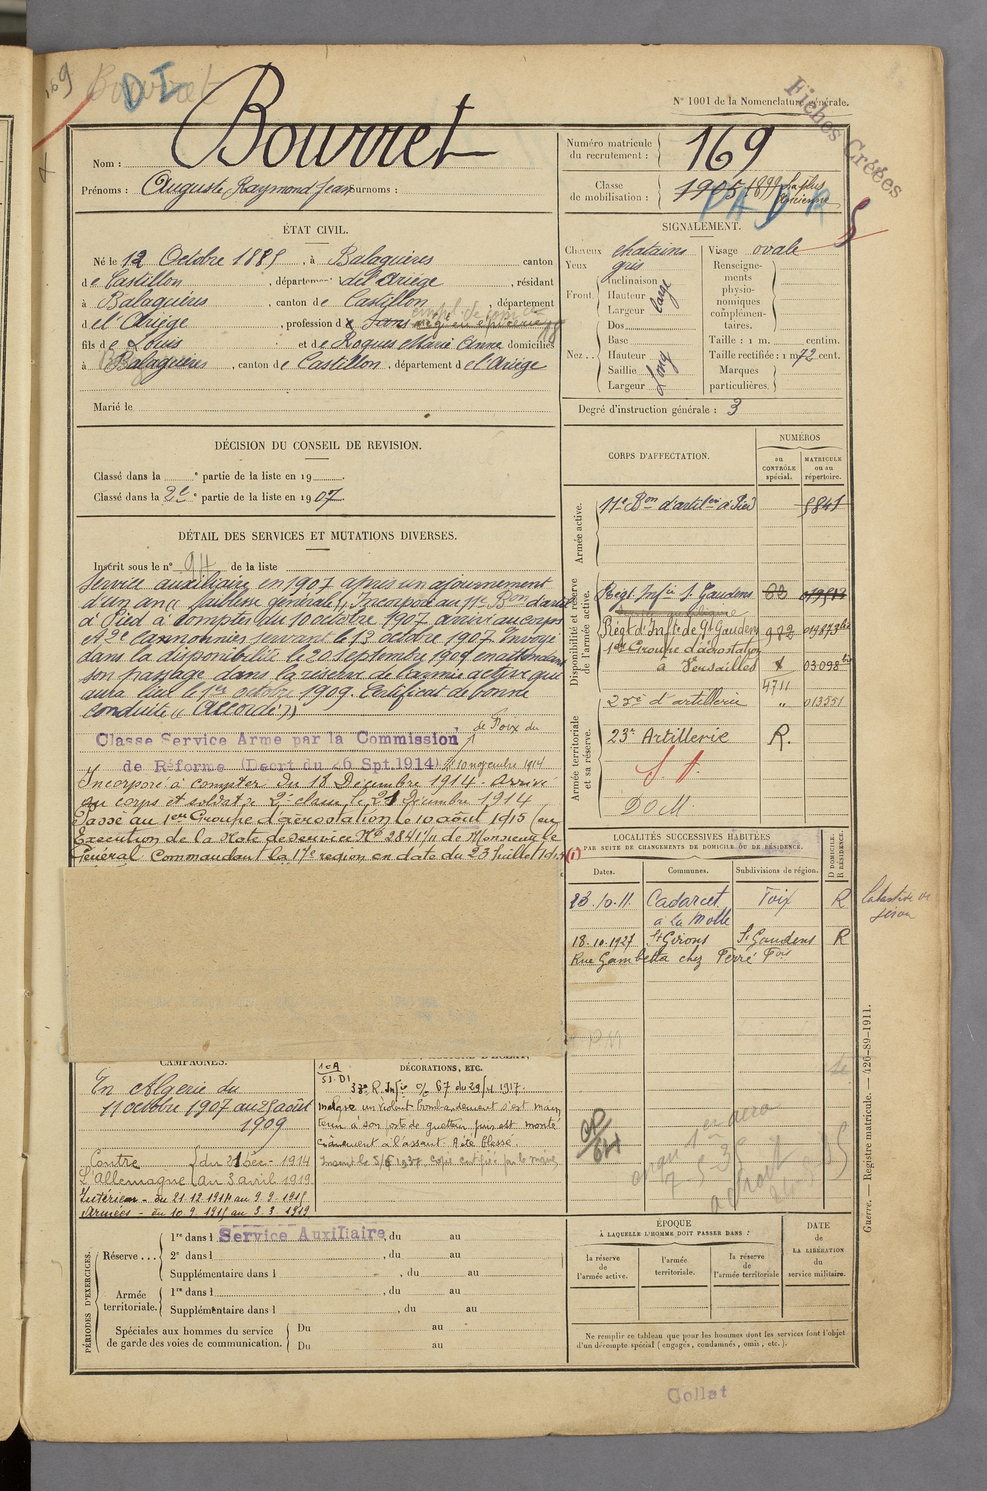 169 Bourret
DI
N° 1001 de la Nomenclature générale.
Fiches Créées
Nom : Bourret
Prénoms : Auguste, Raymond Jean Surnoms :
Numéro matricule du recrutement : 169
Classe de mobilisation : 1905 1899 la plus ancienne
PADR
ÉTAT CIVIL.
Né le 12 Octobre 1885, à Balaguères canton
de Castillon, département de l'Ariège, résidant
à Balaguères, canton de Castillon, département
de l'Ariège, profession de Sans
fils de Louis et de Roques Marie Anne domiciliés
à Balaguères, canton de Castillon, département de l'Ariège
Marié le
SIGNALEMENT.
Cheveux chatains
Yeux gris
Front
Inclinaison
Hauteur
Largeur
large
Nez
Dos
Base
Hauteur
Saillie
Largeur
Long
Visage ovale
Renseignements physionomiques complémentaires.
Taille : 1 m. centim.
Taille rectifiée : 1 m. 72 cent.
Marques particulières.
Degré d'instruction générale : 3
DÉCISION DU CONSEIL DE REVISION.
Classé dans la ° partie de la liste en 19
Classé dans la 2e ° partie de la liste en 1907
DÉTAIL DES SERVICES ET MUTATIONS DIVERSES.
Inscrit sous le n° 94 de la liste
Service auxiliaire en 1907 après un ajournement
d'un an (faiblesse générale). Incorporé au 11e Bon d'artie
à Pied à compter du 10 octobre 1907 arrivé au corps
et 2e cannonnier servant le 13 octobre 1907. Envoyé
dans la disponibilité le 20 Septembre 1909 en attendant
son passage dans la réserve de l'armée active qui
aura lieu le 1er octobre 1909. Certificat de bonne
conduite « Accordé »
Classé Service Armé par la Commission de Foix du
de Réforme (Décrt du 26 Spt. 1914) 10 novembre 1914
Incorporé à compter du 18 Décembre 1914. Arrivé
au corps et soldat de 2e classe le 21 Décembre 1914
Passé au 1er Groupe d'aérostation le 10 août 1915 (en
Exécution de la Note de service No 2841/11 de Monsieur le
Général Commandant la 17e région en date du 23 Juillet 1915
CORPS D'AFFECTATION.
NUMÉROS
au CONTRÔLE spécial.
MATRICULE ou au répertoire.
Armée active.
11e Bon d'artilrie à Pied 5841
Disponibilité et réserve de l'armée active.
Régt Infie St Gaudens
Régt d'Infie de St Gaudens 982
1er Groupe d'aérostation
à Versailles 03098 bis
4711
Armée territoriale et sa réserve.
d'artillerie " 013551
23e Artillerie R.
S. A.
DOM.
LOCALITÉS SUCCESSIVES HABITÉES
(1) PAR SUITE DE CHANGEMENTS DE DOMICILE OU DE RÉSIDENCE.
Dates. Communes. Subdivisions de région. D DOMICILE. R RÉSIDENCE.
23.10.11. Cadarcet Foix R
à la Motte
18-10-1927 St Girons St Gaudens R
Rue Gambetta chez Ferré Fois
Labastide de
Sérou
CAMPAGNES.
En Algérie du
11 octobre 1907 au 25 août
1909
Contre l'Allemagne
du 21 Déc - 1914
au 3 avril 1919
Intérieur - du 21.12.1914 au 9.9.1915
Armées - du 10.9.1915 au 3.3.1919
DÉCORATIONS, ETC.
R. Infie o/ 67 du 29/ 1917.
malgré un violent bombardement s'est main
tenu à son poste de guetteur puis est monté
crânement à l'assaut. A été blessé.
PÉRIODES D'EXERCICES.
Réserve...
1re dans l Service Auxiliaire, du au
2e dans l , du au
Supplémentaire dans l , du au
Armée territoriale.
1re dans l , du au
Supplémentaire dans l , du au
Spéciales aux hommes du service de garde des voies de communication.
Du au
Du au
ÉPOQUE
À LAQUELLE L'HOMME DOIT PASSER DANS :
la réserve de l'armée active.
l'armée territoriale.
la réserve de l'armée territoriale
DATE de LA LIBÉRATION du service militaire.
Ne remplir ce tableau que pour les hommes dont les services font l'objet
d'un décompte spécial (engagés, condamnés, omis, etc.).
Guerre. — Registre matricule. — 426-89-1911.
Collat